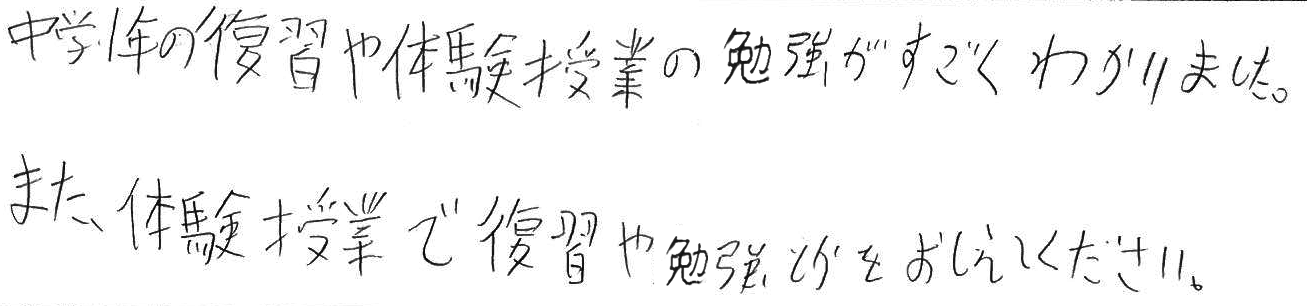 中学1年の復習や体験授業の勉強がすごくわかりました。
また、体験授業で復習や勉強とかをおしえてください。